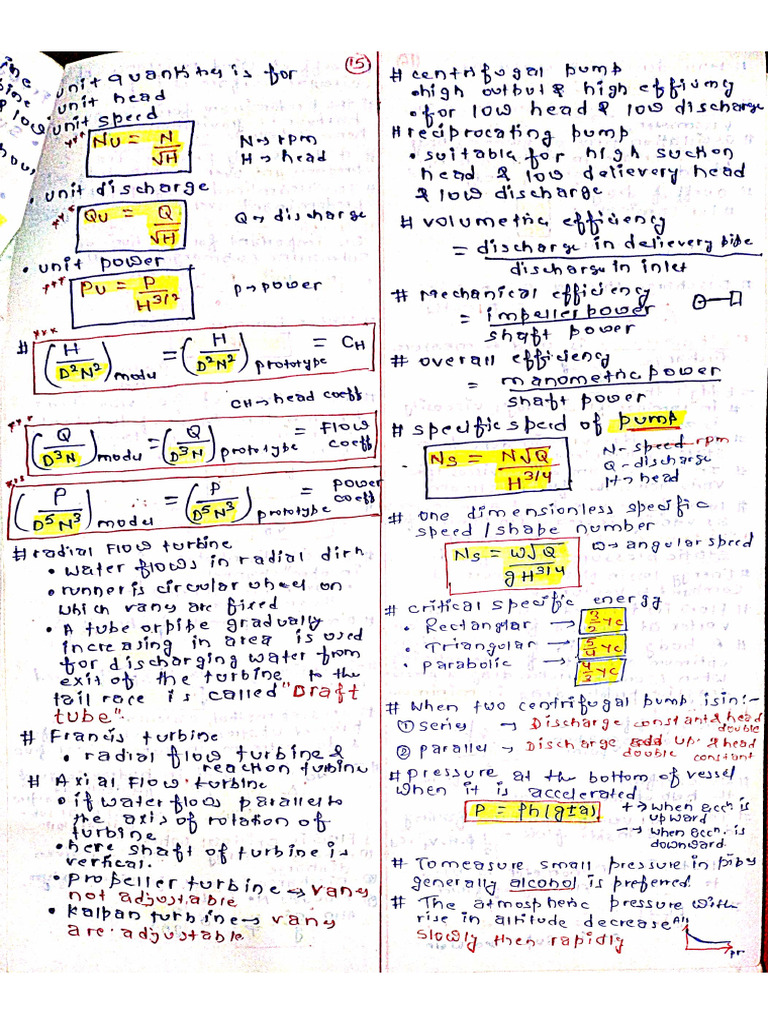 15
unit quantities is for
unit head
unit speed
*** Nu = N/√H
N → rpm
H → head
• unit discharge
*** Qu = Q/√H
Q → discharge
• unit power
*** Pu = P/H^3/2
P → power
***
# (H/D²N²) model = (H/D²N²) prototype = CH
CH → head coeff
***
(Q/D³N) model = (Q/D³N) prototype = Flow coeff
***
(P/D⁵N³) model = (P/D⁵N³) prototype = power coeff
# radial flow turbine
• water flows in radial dirn
• runner is circular wheel on
which vans are fixed
• A tube or pipe gradually
increasing in area is used
for discharging water from
exit of the turbine to the
tail race is called "Draft
tube".
# Francis turbine
• radial flow turbine &
reaction turbine
# Axial flow turbine
• if water flows parallel to
the axis of rotation of
turbine
• here shaft of turbine is
vertical.
• propeller turbine → vans
not adjustable
• kalpan turbine → vans
are adjustable
# centrifugal pump
• high output & high efficiency
• for low head & low discharge
# reciprocating pump
• suitable for high suction
head & low delievery head
& low discharge
# volumetric efficiency
= discharge in delievery pipe
discharge in inlet
# Mechanical efficiency
= impeller power
shaft power
# overall efficiency
= manometric power
shaft power
# specific speed of pump
Ns = N√Q/H^3/4
N - speed rpm
Q - discharge
H → head
# one dimensionless specific
speed / shape number
Ns = ω√Q/gH^3/4
ω → angular speed
# critical specific energy
• Rectangular → 3/2 yc
• Triangular → 5/4 yc
• parabolic → 4/3 yc
# when two centrifugal pump is in:-
① series → Discharge constant & head
double
② parallel → Discharge add up & head
double constant
# pressure at the bottom of vessel
when it is accelerated
P = ρh(g±a)
+ → when accn is
upward
- → when accn. is
downward.
# To measure small pressure in pipes
generally alcohol is preferred.
# The atmospheric pressure with
rise in altitude decrease
slowly then rapidly
Alt
pr